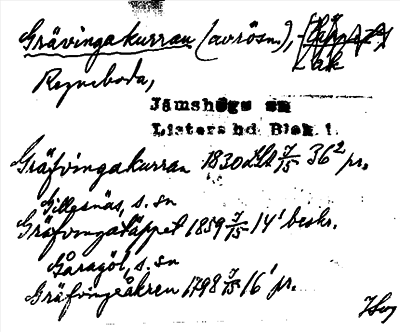 Grävingakurran (avrösn.), 
Låk
Regneboda,
Jämshögs sn
Listers hd Blek. l.
Gräfvingakurran 1830 7/15 36² pr.
Gillesnäs, s. sn
Gräfvingatäppet 1859 7/15 14' beskr.
Gåragöl, s. sn
Gräfvingeåkren 1798 7/15 16' pr.